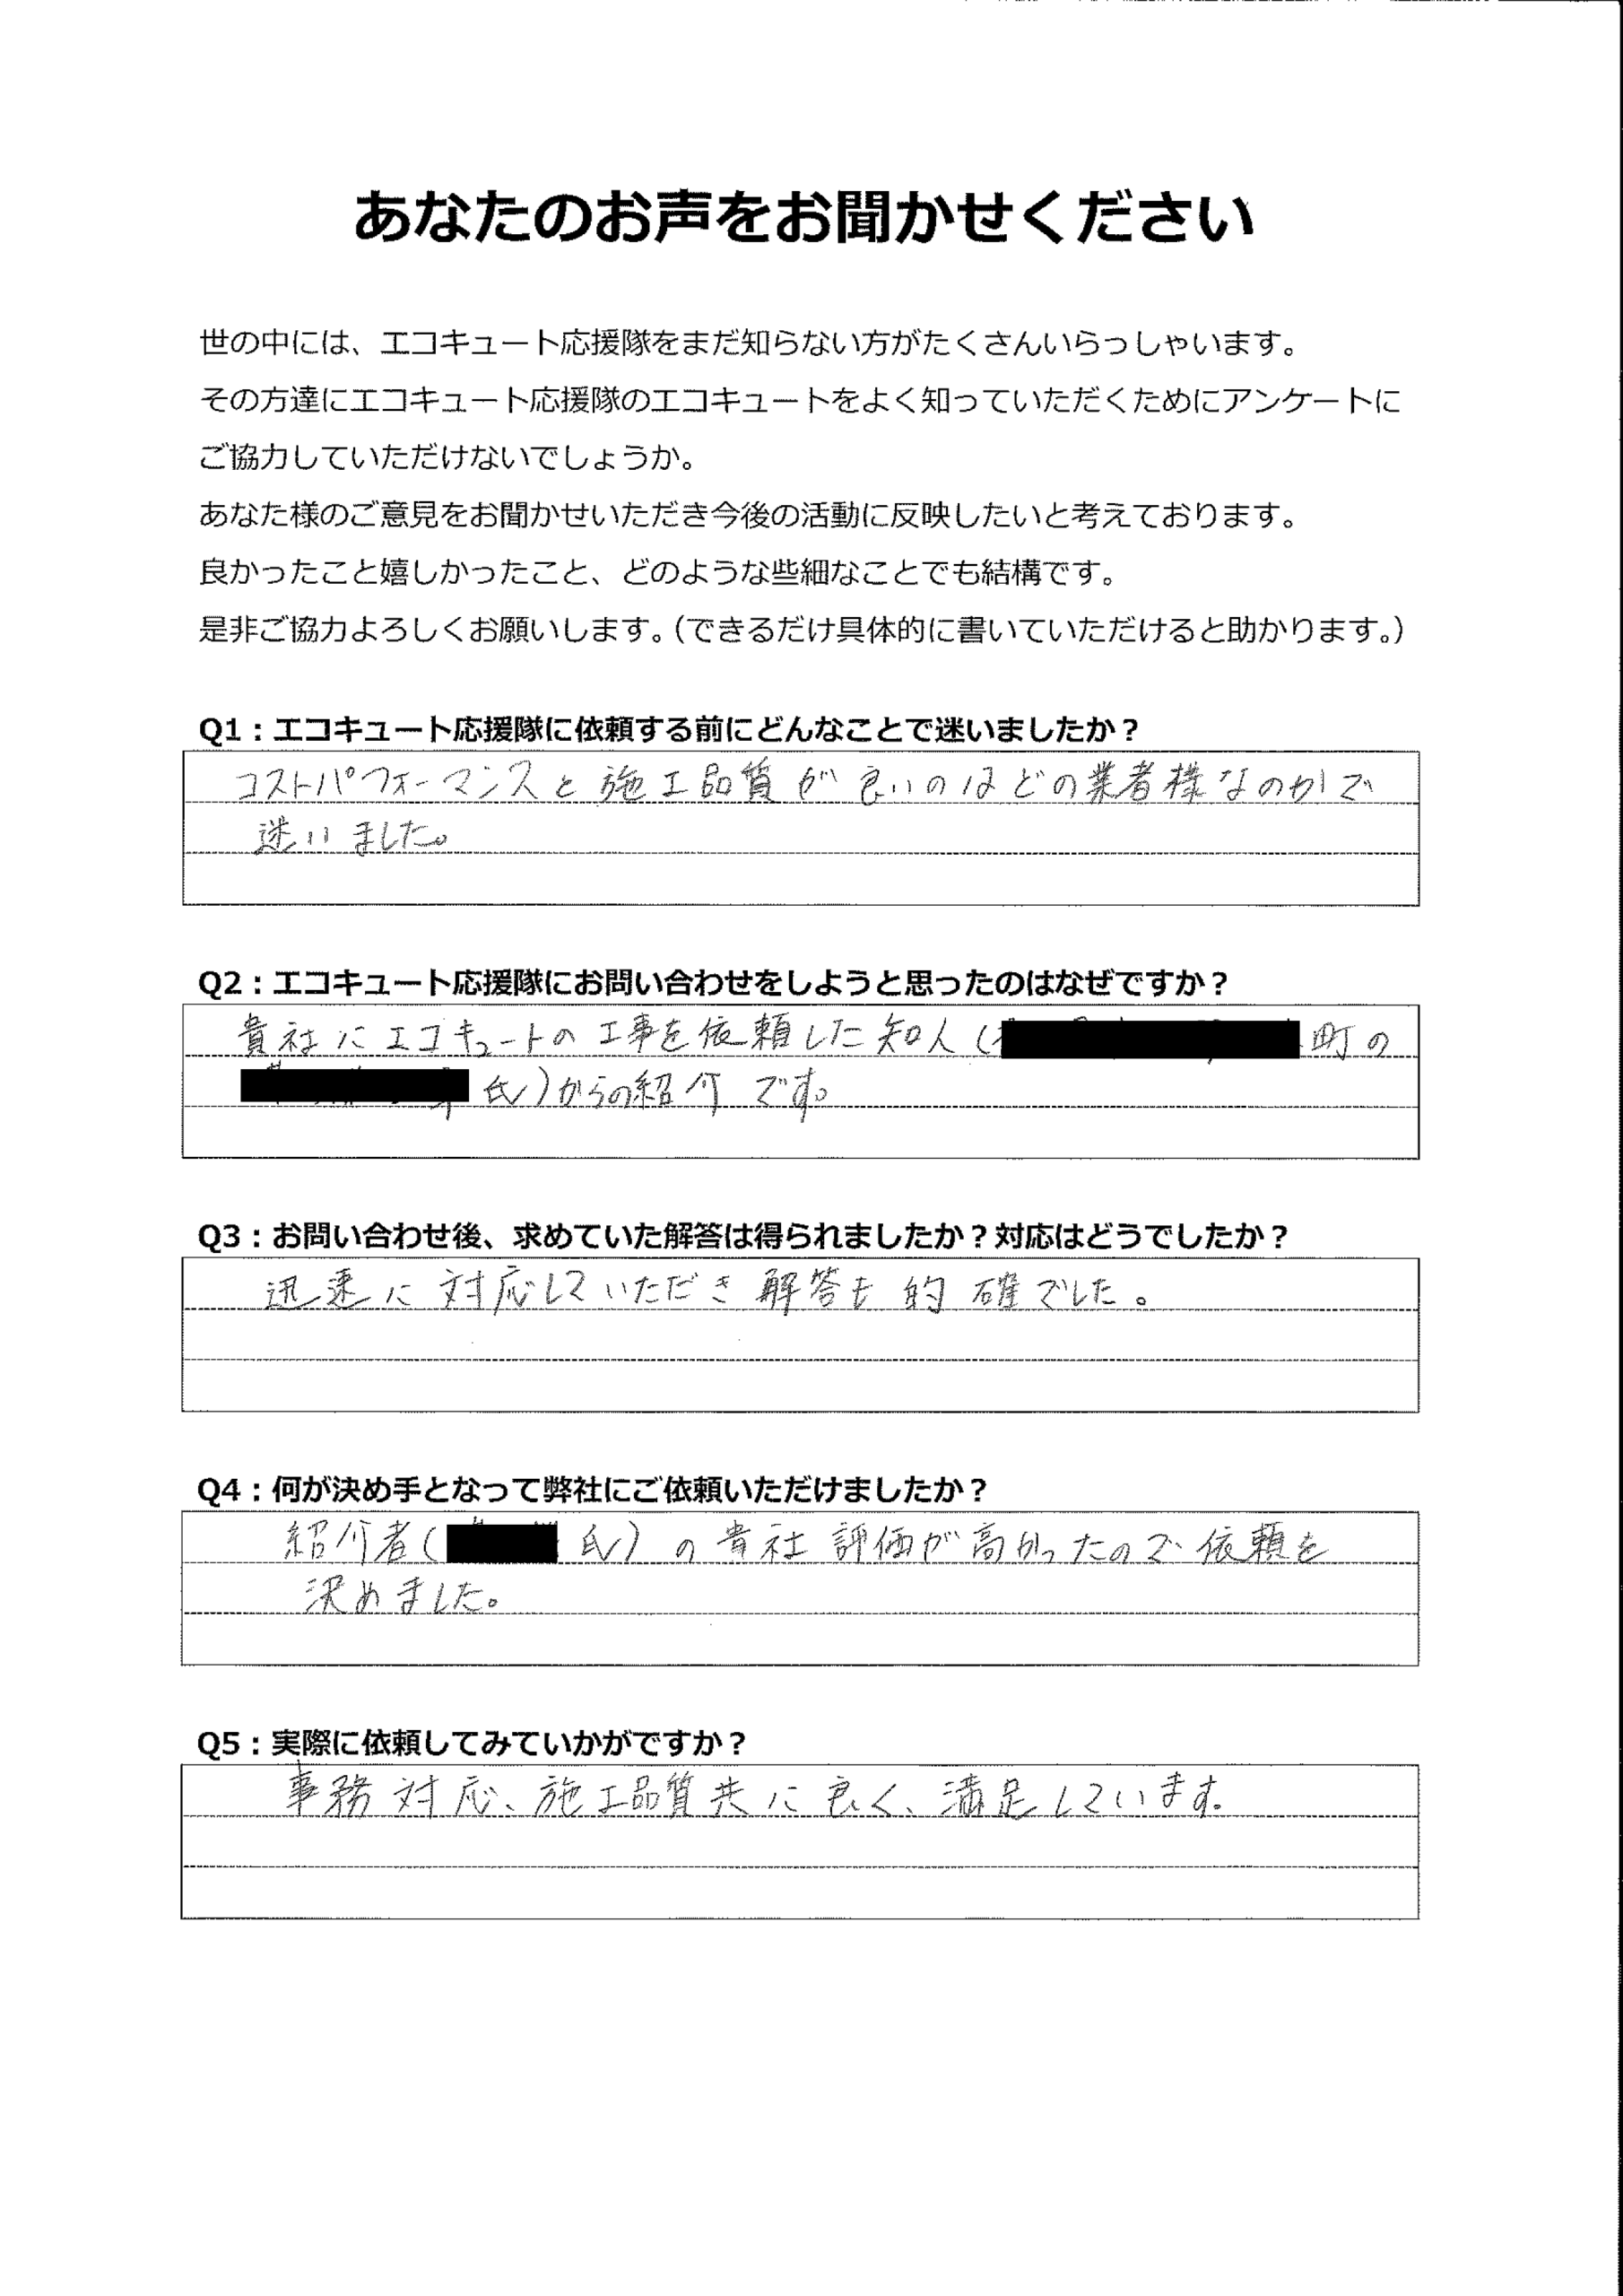 あなたのお声をお聞かせください
世の中には、エコキュート応援隊をまだ知らない方がたくさんいらっしゃいます。
その方達にエコキュート応援隊のエコキュートをよく知っていただくためにアンケートに
ご協力していただけないでしょうか。
あなた様のご意見をお聞かせいただき今後の活動に反映したいと考えております。
良かったこと嬉しかったこと、どのような些細なことでも結構です。
是非ご協力よろしくお願いします。（できるだけ具体的に書いていただけると助かります。）
Q1：エコキュート応援隊に依頼する前にどんなことで迷いましたか？
コストパフォーマンスと施工品質が良いのはどの業者様なのかで
迷いました。
Q2：エコキュート応援隊にお問い合わせをしようと思ったのはなぜですか？
貴社にエコキュートの工事を依頼した知人(町の
氏)からの紹介です。
Q3：お問い合わせ後、求めていた解答は得られましたか？対応はどうでしたか？
迅速に対応していただき解答も的確でした。
Q4：何が決め手となって弊社にご依頼いただけましたか？
紹介者(氏)の貴社評価が高かったので依頼を
決めました。
Q5：実際に依頼してみていかがですか？
事務対応、施工品質共に良く、満足しています。